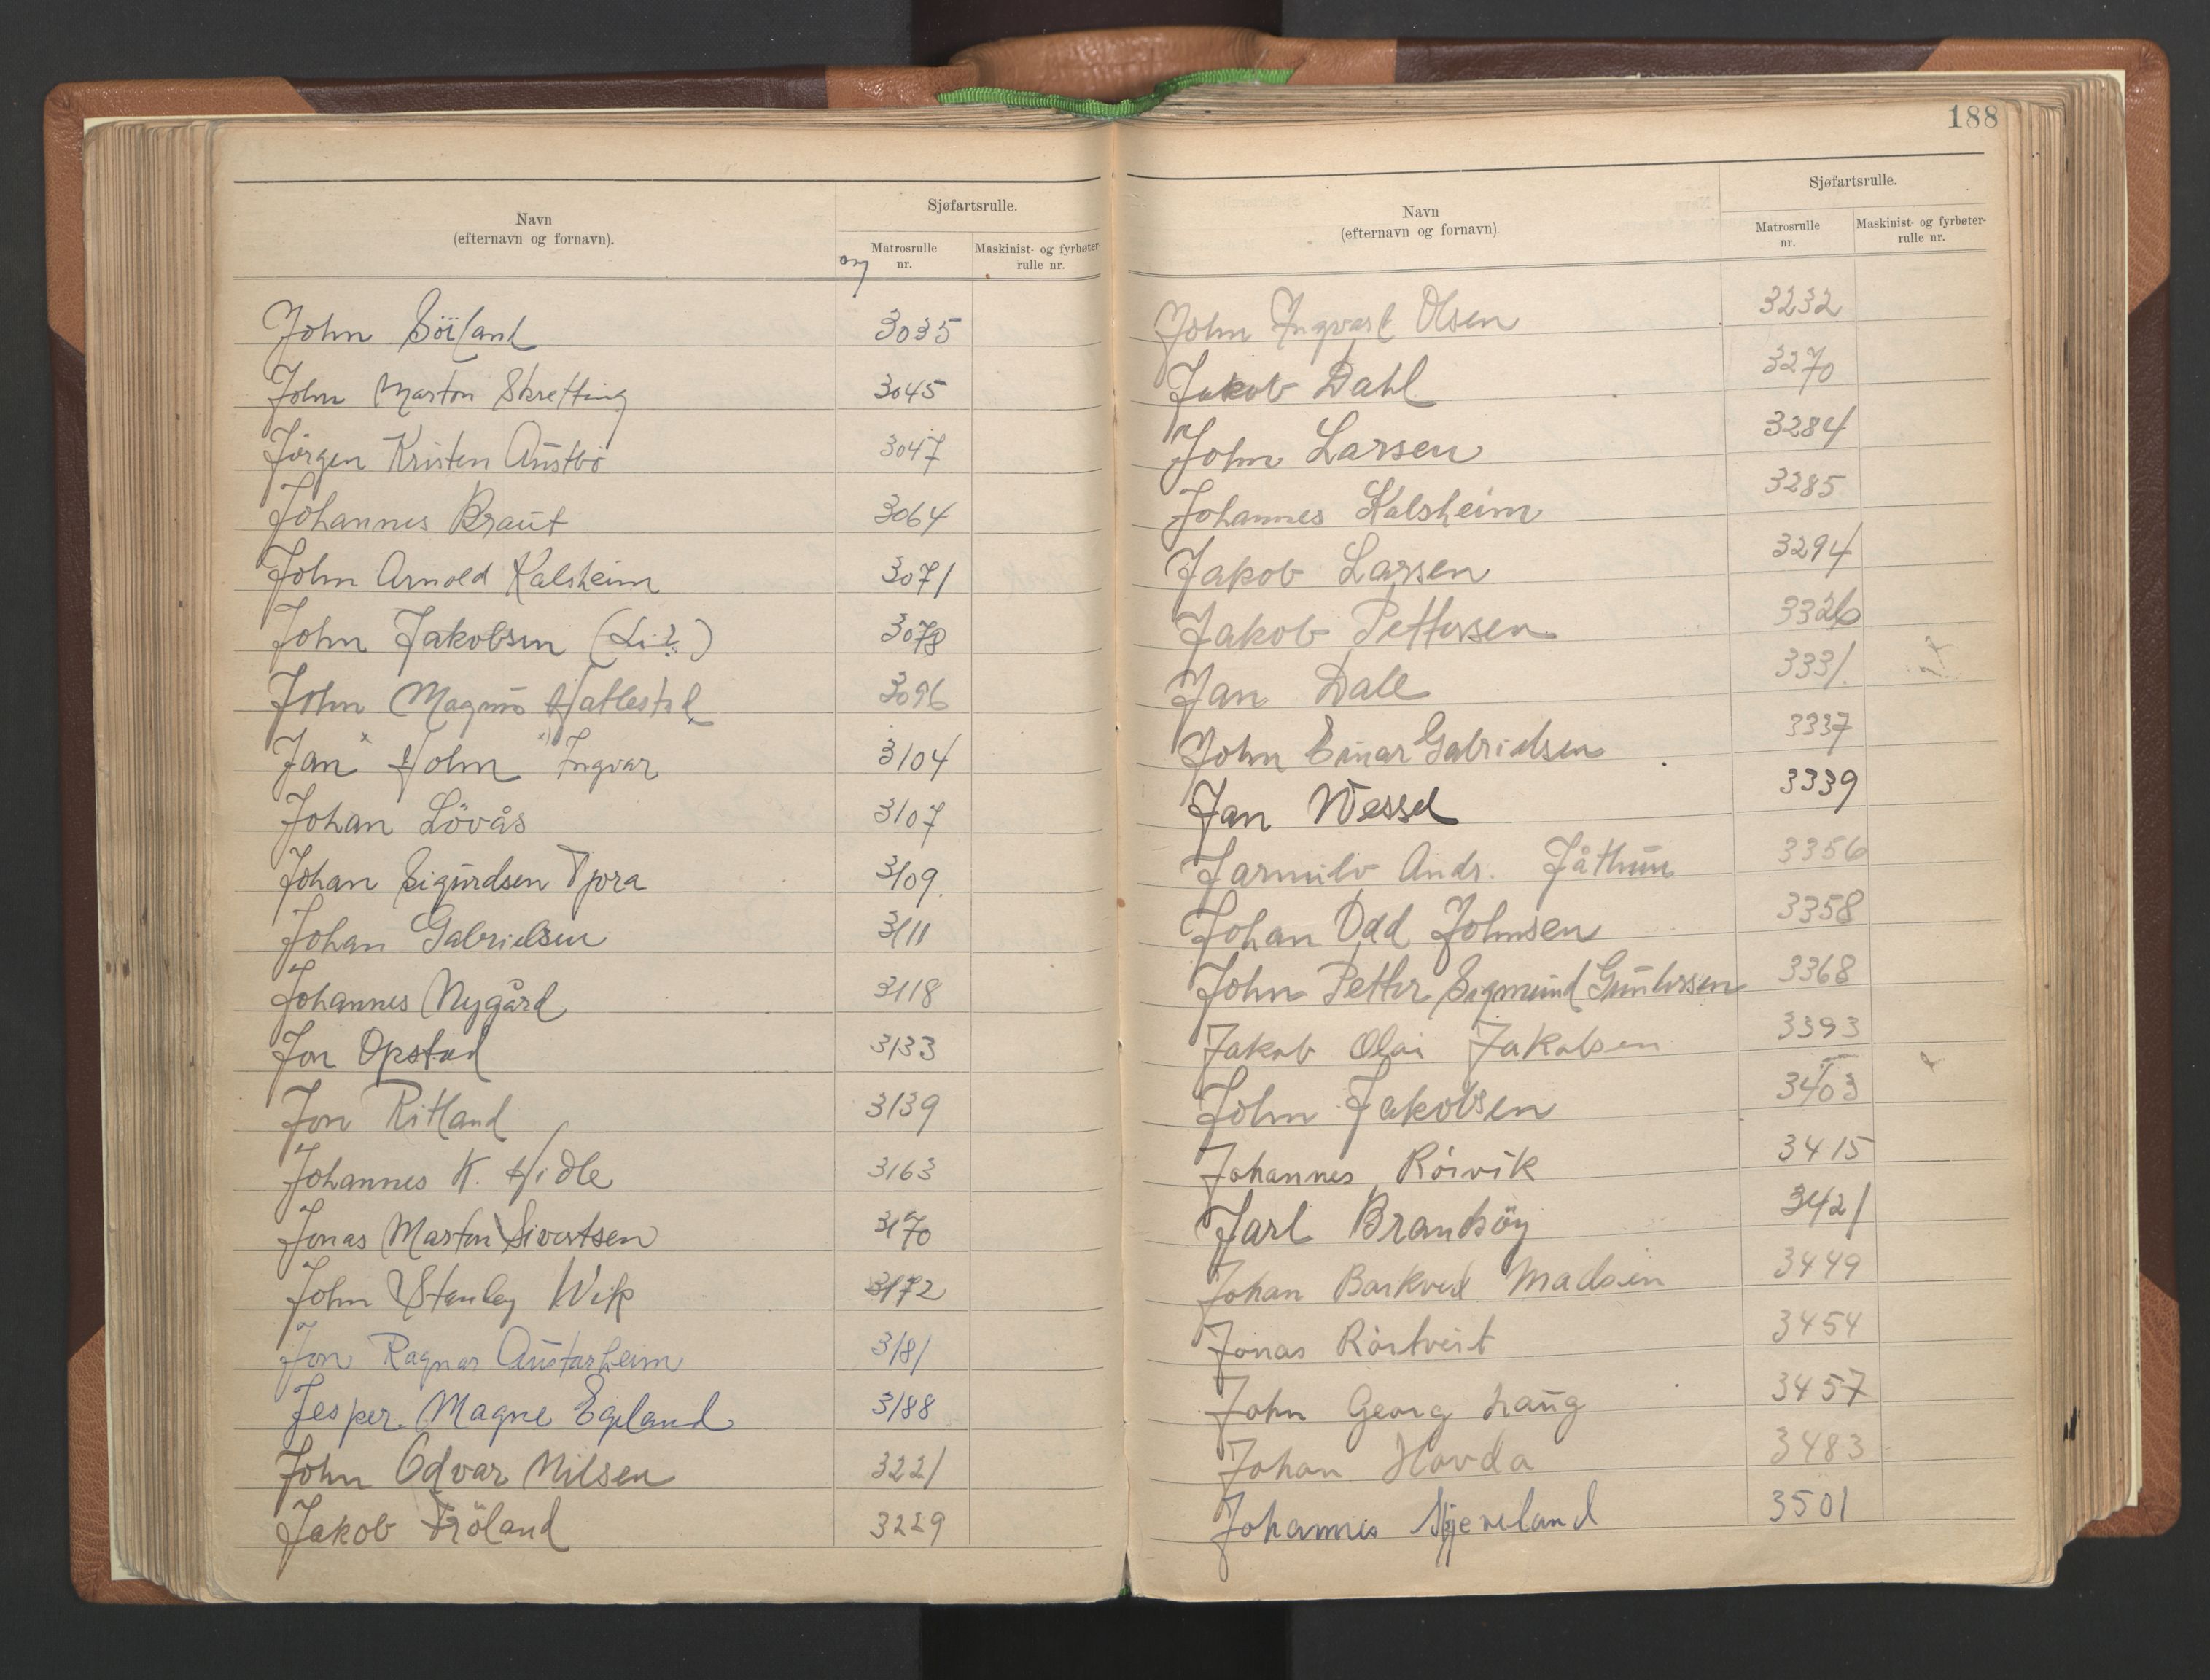 Navn
(efternavn og fornavn).
Sjøfartsrulle.
Matrosrulle
nr.
Maskinist- og fyrbøter-
rulle nr.
John Söiland 3035
John Marton Skretting 3045
Jörgen Kristen Austbö 3047
Johannes Braut 3064
John Arnold Kalsheim 3071
John Jakobsen 3078
John Magnus Hatlestad 3096
Jan x Holm x) Ingvar 3104
Johan Lövås 3107
Johan Sigurdsen Tjora 3109.
Johan Gabrielsen 3111
Johannes Nygård 3118
Jon Opstad 3133
Jon Ritland 3139
Johannes K. Hidle 3163
Jonas Marton Sivertsen 3170
John Stanley Wik 3172
Jon Ragnar Austarheim 3181
Jesper Magne Egeland 3188
John Odvar Nilsen 3221
Jakob Fröland 3229
188
Navn
(efternavn og fornavn)
Sjøfartsrulle.
Matrosrulle
nr.
Maskinist- og fyrbøter-
rulle nr.
John Ingvart Olsen 3232
Jakob Dahl 3270
John Larsen 3284
Johannes Kalsheim 3285
Jakob Larsen 3294
Jakob Pettersen 3326
Jan Dale 3331.
John Einar Gabrielsen 3337
Jan Wessel 3339
Jarmulv Andr. Jåthun 3356
Johan Odd Johnsen 3358
John Petter Sigmund Gundersen 3368
Jakob Olai Jakobsen 3393
John Jakobsen 3403
Johannes Rörvik 3415
Jarl Brandsöy 3421
Johan Barkved Madsen 3449
Jonas Rörtveit 3454
John Georg Haug 3457
Johan Hovda 3483
Johannes Skjeveland 3501